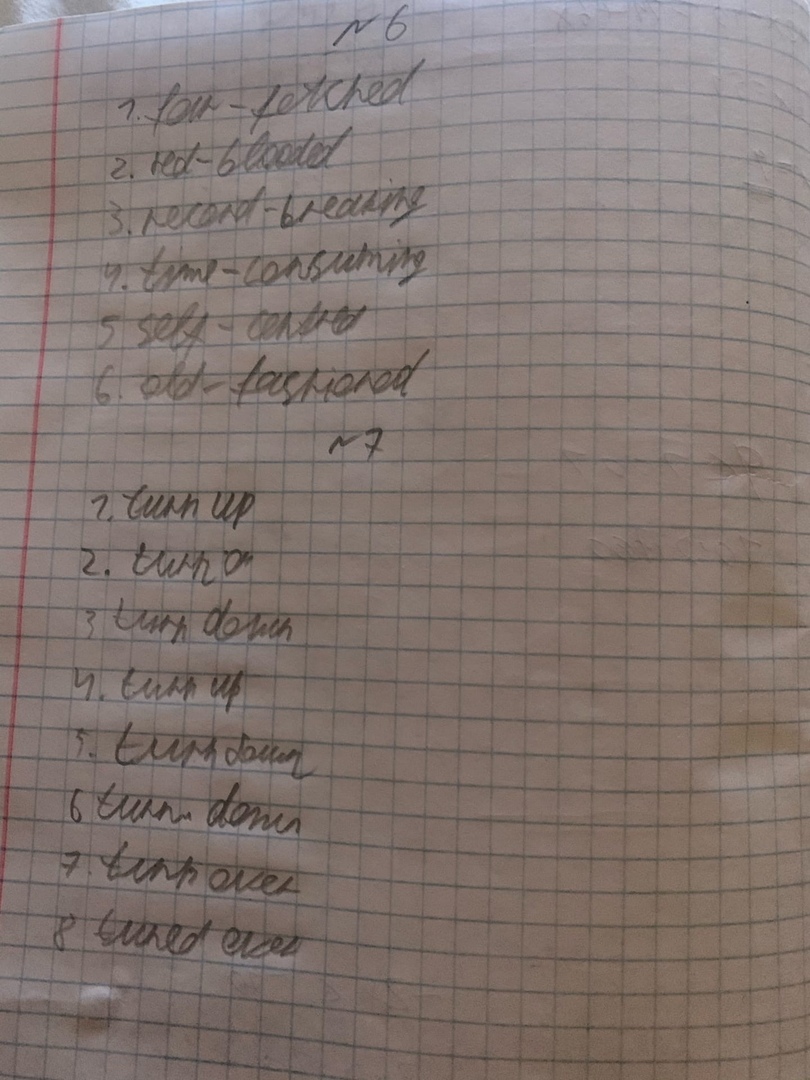 №6
1. far-fetched
2. red-blooded
3. record-breaking
4. time-consuming
5 self-centred
6. old-fashioned
№7
1. turn up
2. turn on
3 turn down
4. turn up
5. turn down
6 turn down
7. turn over
8 turned over